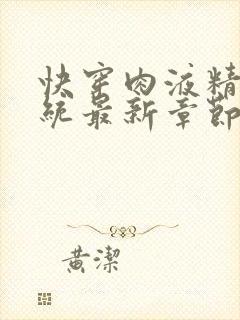 快穿肉液精
統最新章節
黄潔